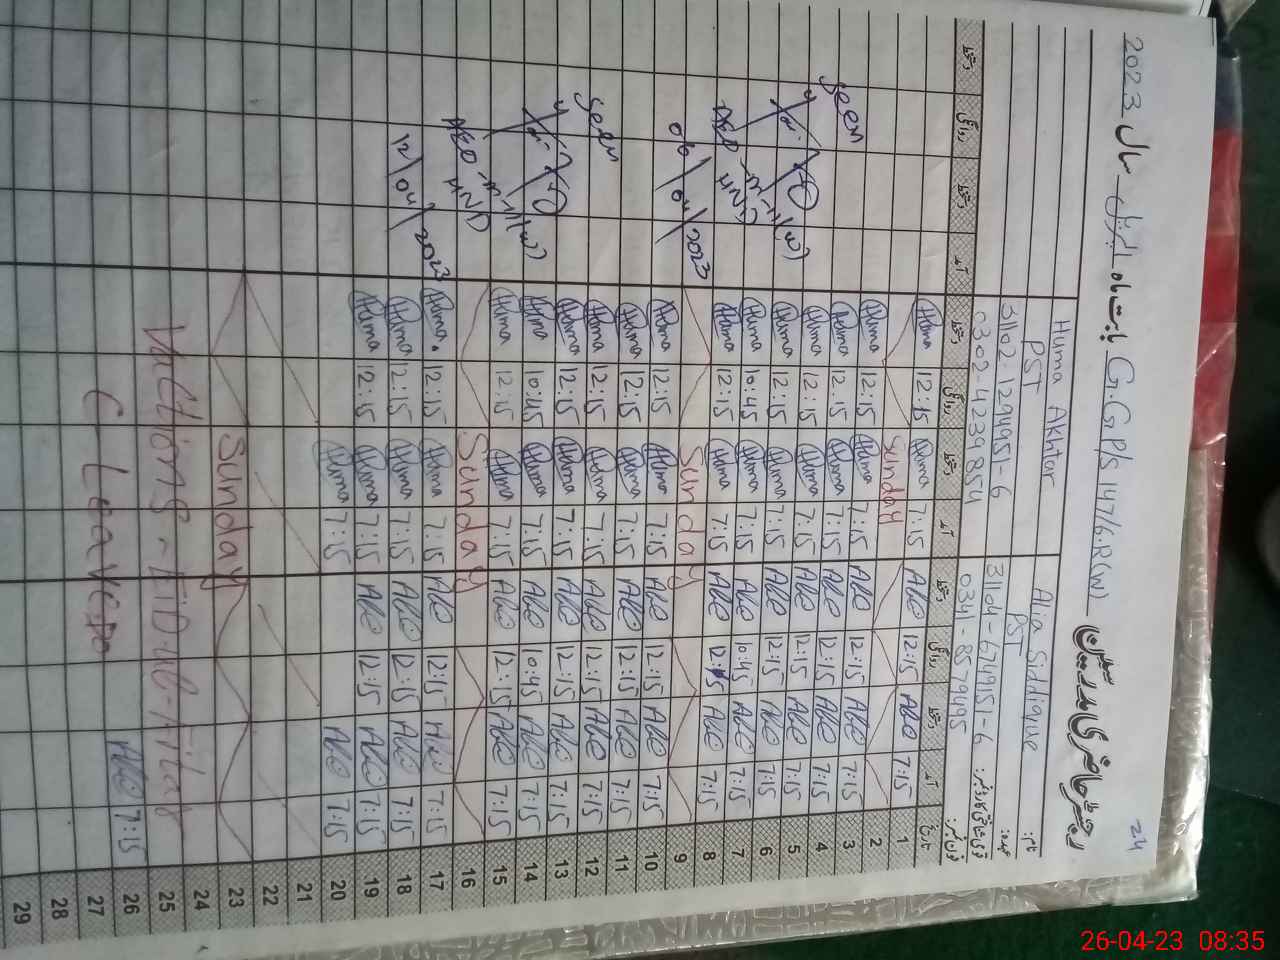 24
رجسٹر حاضری مدرسین G.G.P/S 147/6.R(W) بابت ماہ اپریل سال 2023
نام: Alia Siddique Huma Akhtar
عہدہ: PST PST
قومی شناختی کارڈ نمبر: 31104-6749151-6 31102-1299495-6
فون نمبر: 0341-8579495 0302-4239854
تاریخ آمد دستخط روانگی دستخط آمد دستخط روانگی دستخط آمد دستخط روانگی دستخط
1 7:15 Alia 12:15 Alia 7:15 Huma 12:15 Huma
2 Sunday
3 7:15 Alia 12:15 Alia 7:15 Huma 12:15 Huma
4 7:15 Alia 12:15 Alia 7:15 Huma 12:15 Huma seen
5 7:15 Alia 12:15 Alia 7:15 Huma 12:15 Huma
6 7:15 Alia 12:15 Alia 7:15 Huma 12:15 Huma
7 7:15 Alia 10:45 Alia 7:15 Huma 10:45 Huma
8 7:15 Alia 12:15 Alia 7:15 Huma 12:15 Huma AEO-m-11(w) HND
9 Sunday 06/04/2023
10 7:15 Alia 12:15 Alia 7:15 Huma 12:15 Huma
11 7:15 Alia 12:15 Alia 7:15 Huma 12:15 Huma
12 7:15 Alia 12:15 Alia 7:15 Huma 12:15 Huma seen
13 7:15 Alia 12:15 Alia 7:15 Huma 12:15 Huma
14 7:15 Alia 10:45 Alia 7:15 Huma 10:45 Huma
15 7:15 Alia 12:15 Alia 7:15 Huma 12:15 Huma
16 Sunday AEO-m-11(w) HND
17 7:15 Alia 12:15 Alia 7:15 Huma 12:15 Huma
18 7:15 Alia 12:15 Alia 7:15 Huma 12:15 Huma 12/04/2023
19 7:15 Alia 12:15 Alia 7:15 Huma 12:15 Huma
20 7:15 Alia 7:15 Huma
21
22
23 Sunday
24
25 Vactions - EiD-ul-Fitar
26 7:15 Alia
27 C-Leave
28
29
26-04-23 08:35